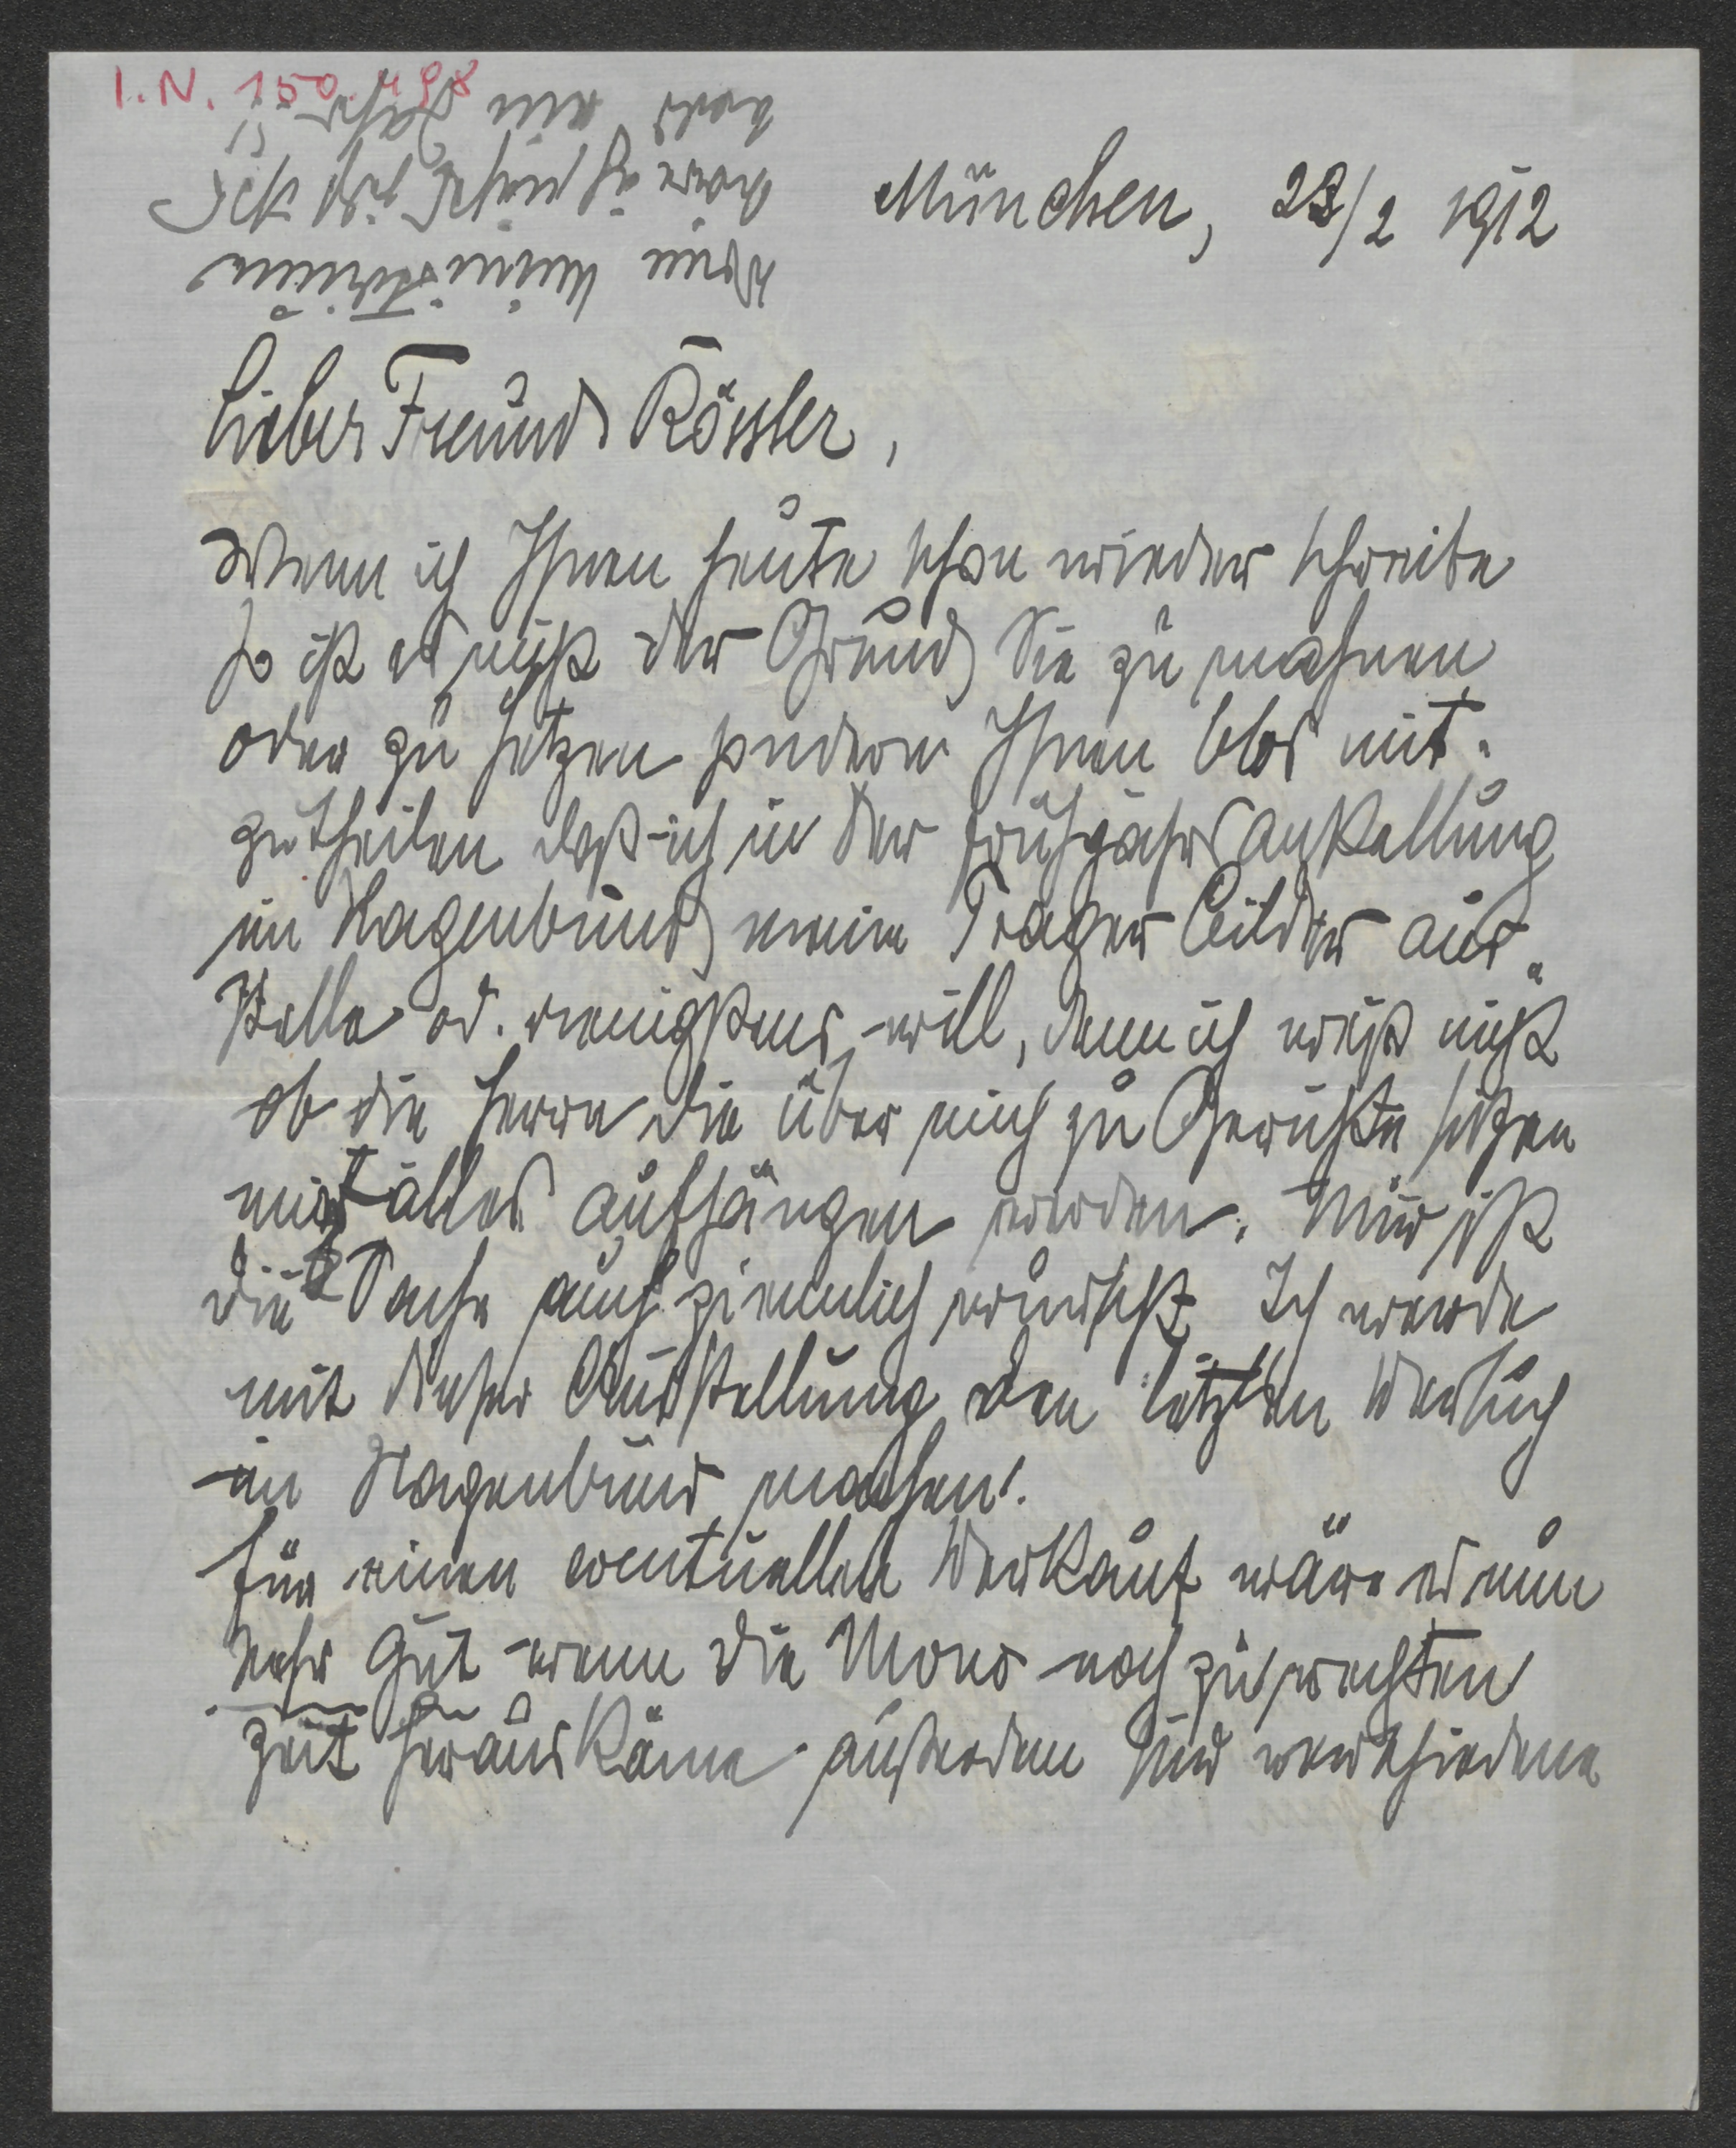 I.N. 150.498
München, 28/2 1912
Lieber Freund Rössler,
Wenn ich Ihnen heute schon wieder schreibe
so ist es nicht der Grund Sie zu mahnen
oder zu hetzen sondern Ihnen blos mit-
zutheilen daß ich in der Frühjahrsausstellung
im Hagenbund meine Prager Bilder aus-
stelle od. wenigstens will, denn ich weiß nicht
ob die Herrn die über mich zu Gerichte sitzen
mir alles aufhängen werden. Mir ist
die Sache auch ziemlich wurscht. Ich werde
mit dieser Ausstellung den letzten Versuch
im Hagenbund machen.
Für einen eventuellen Verkauf wäre es nun
sehr gut wenn die Mono noch zu rechten
Zeit herauskäme außerdem sind verschiedene